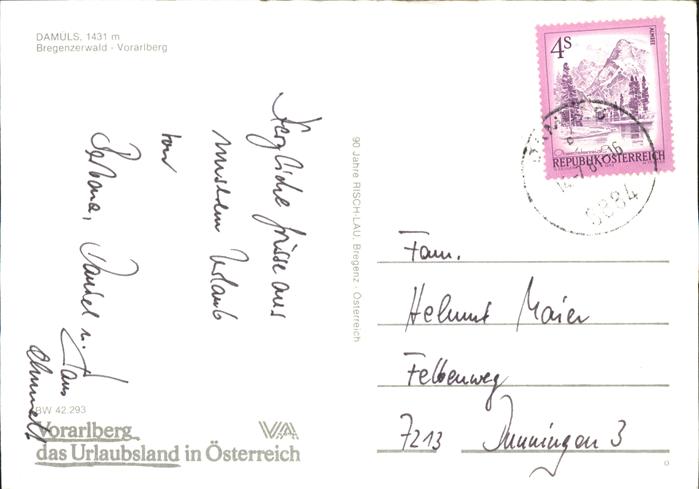 DAMÜLS, 1431 m
Bregenzerwald - Vorarlberg
Herzliche Grüsse aus
unserem Urlaub
von
Daniel u.
BW 42.293
Vorarlberg
das Urlaubsland in Österreich
VA
90 Jahre RISCH-LAU, Bregenz - Österreich
4S
ALMSEE
REPUBLIK ÖSTERREICH
6884
Fam.
Helmut Maier
Felbenweg
7213 Dunningen 3